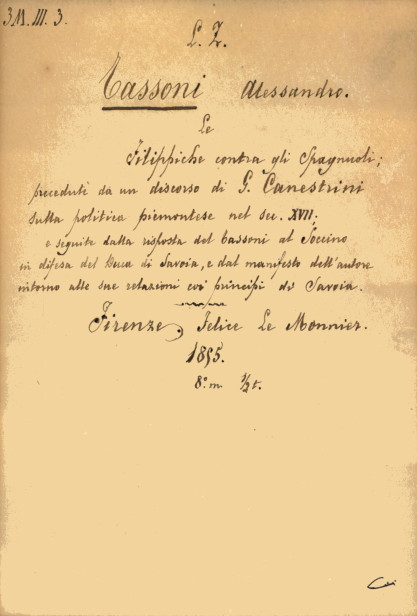 3M.III.3.
L. Z.
Tassoni Alessandro.
Le
Filippiche contra gli Spagnuoli;
precedute da un discorso di G. Canestrini
sulla politica piemontese nel sec. XVII;
e seguite dalla risposta del Tassoni al Soccino
in difesa del Duca di Savoia, e dal manifesto dell'autore
intorno alle sue relazioni coi principi di Savoia.
Firenze, Felice Le Monnier.
1855.
8.º m ½ t.